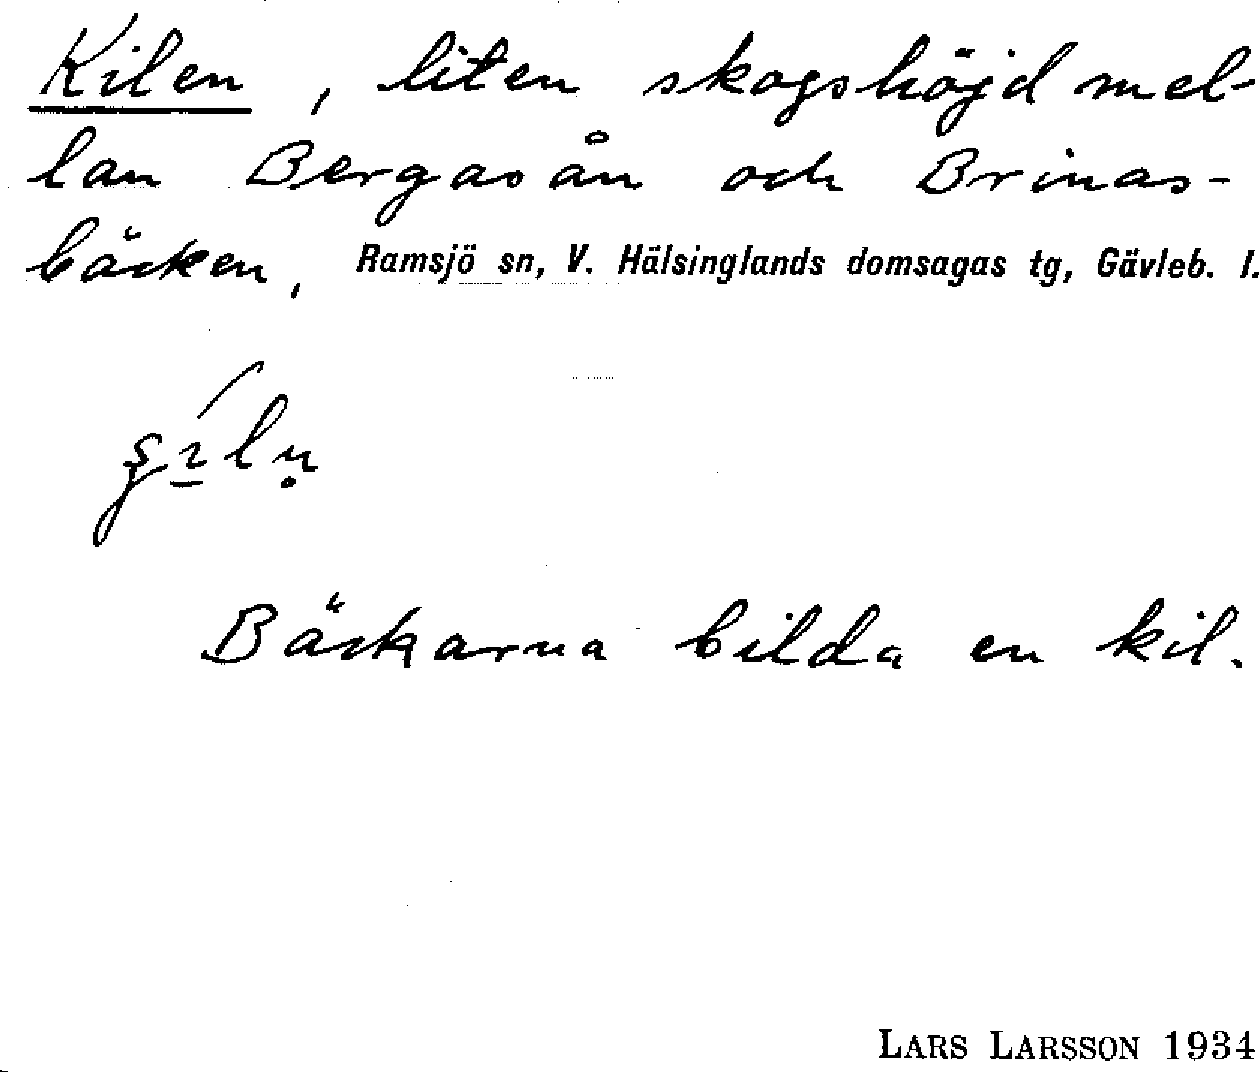 Kilen, liten skogshöjd mel-
lan Bergasån och Brinas-
bäcken, Ramsjö sn, V. Hälsinglands domsagas tg, Gävleb. l.
Bäckarna bilda en kil.
LARS LARSSON 1934